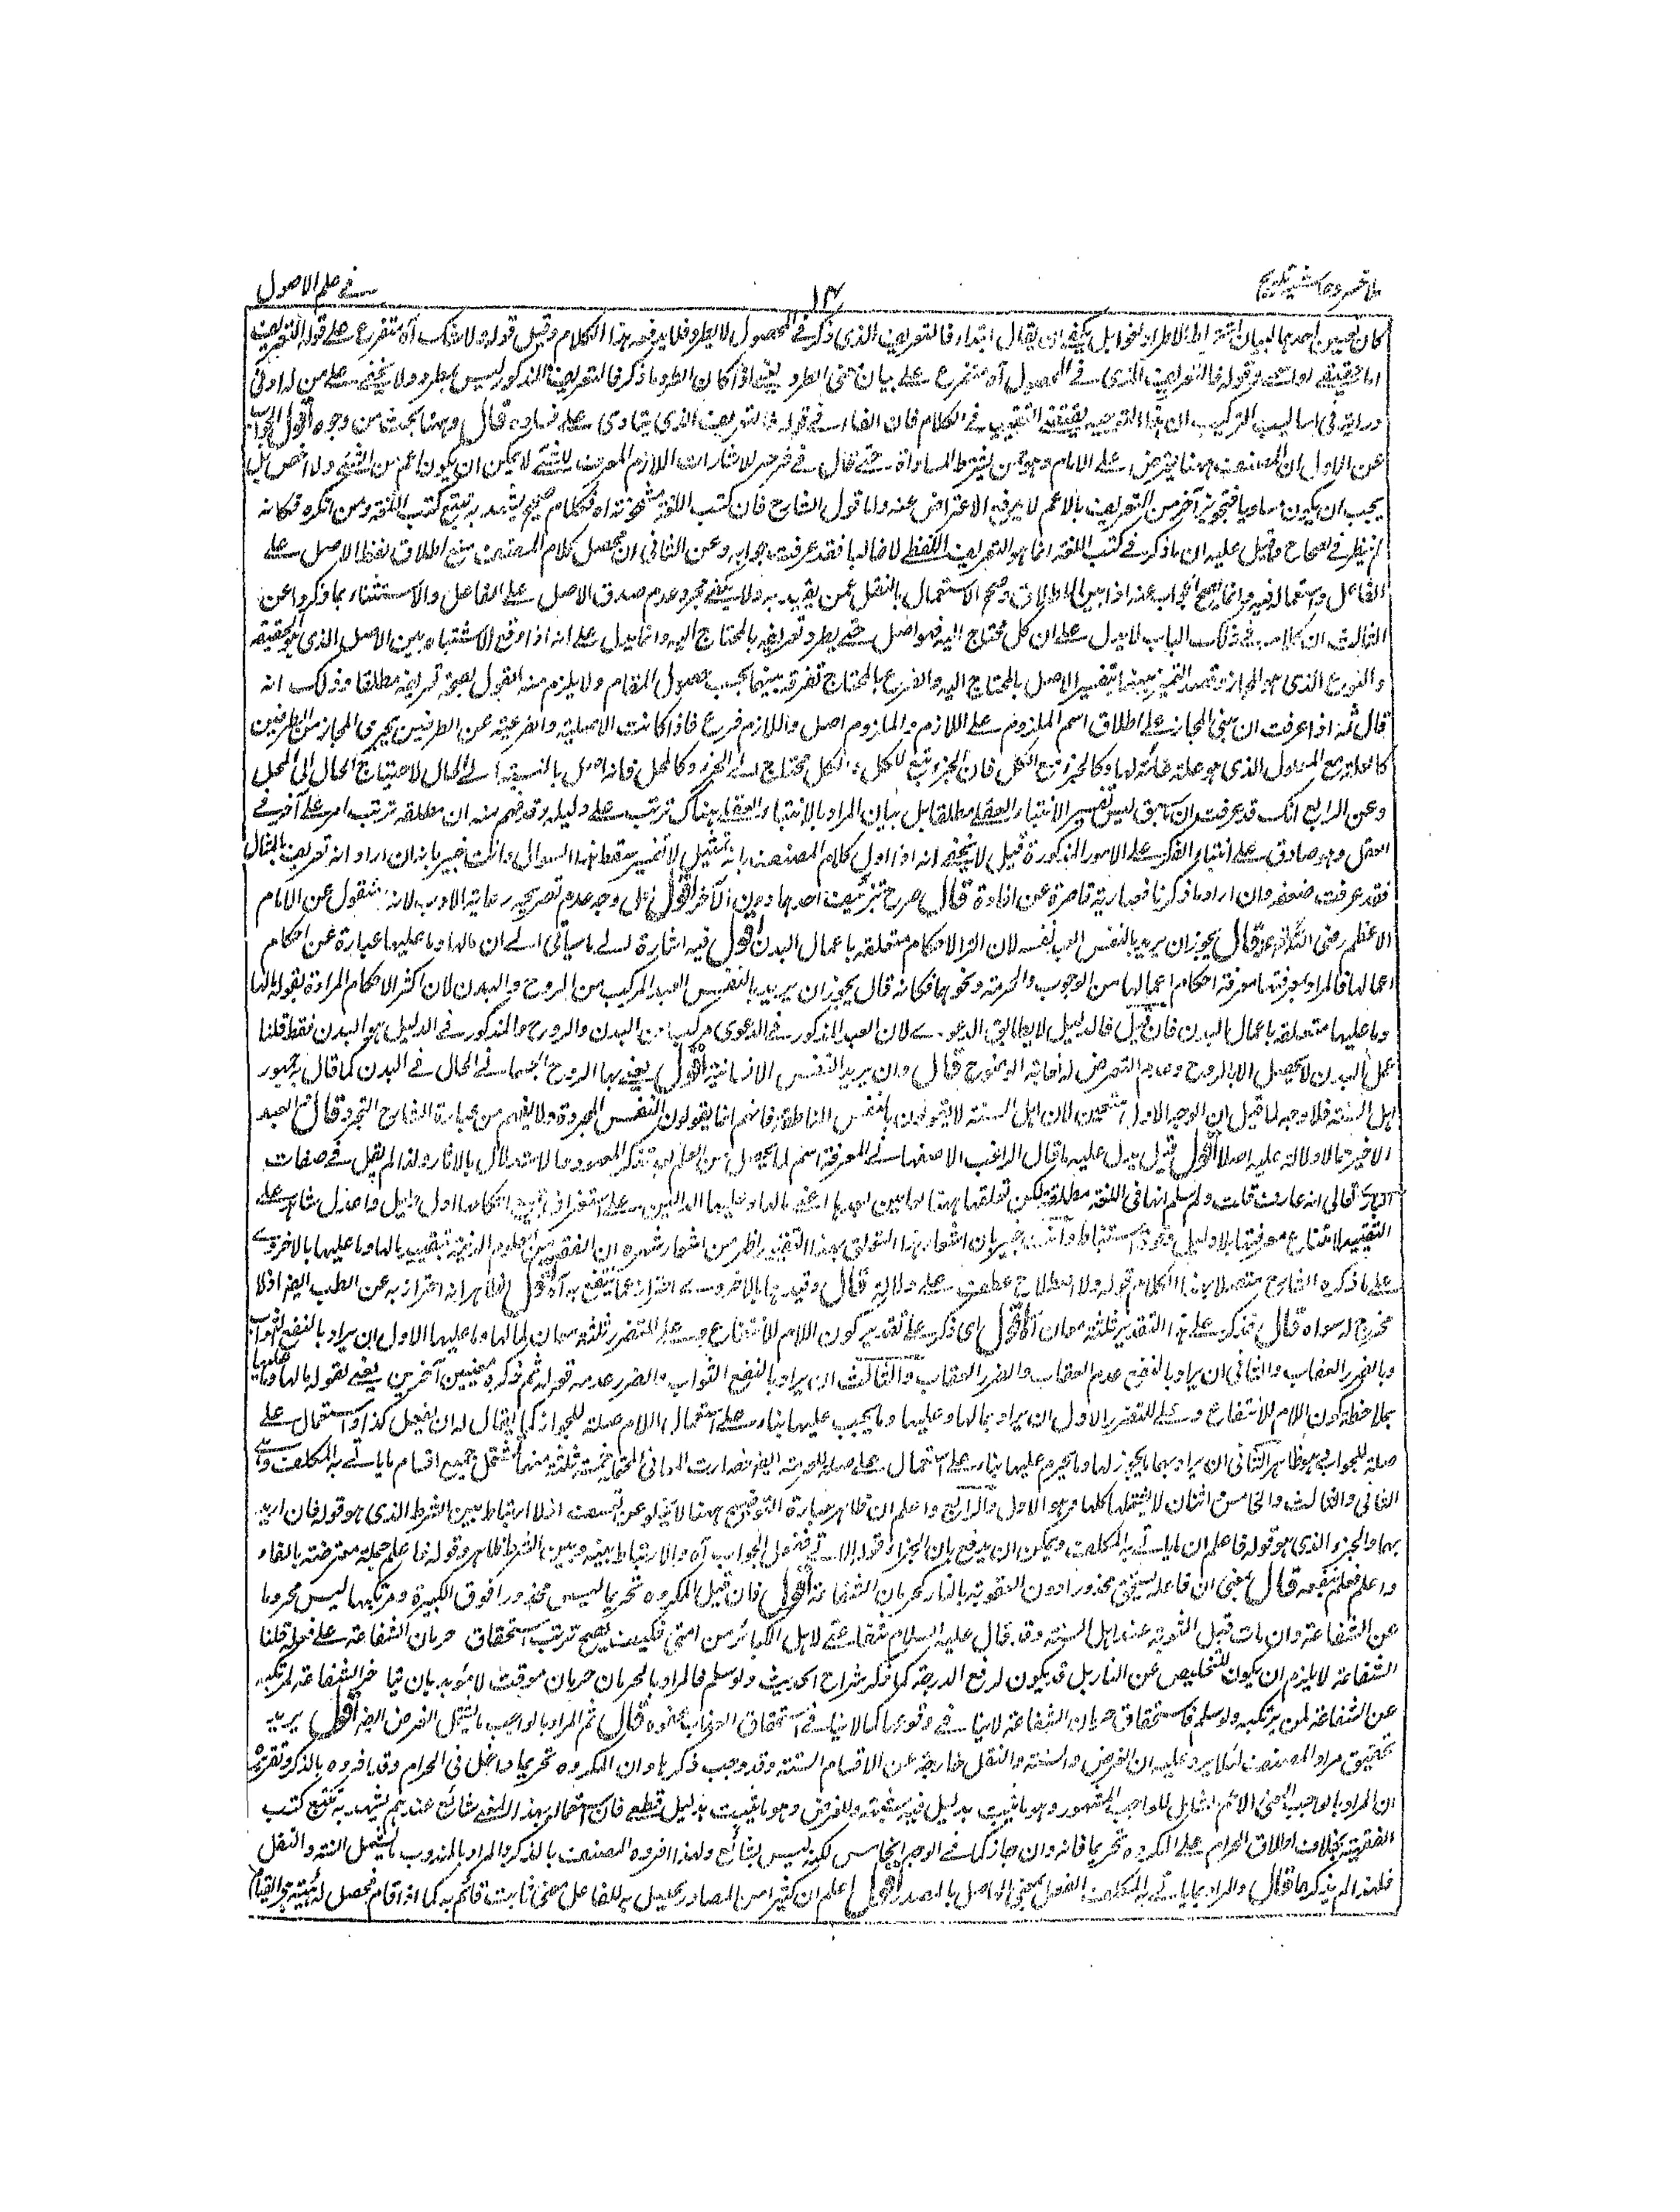 ملا خسرو حاشية تلويح
١٣
في علم الاصول
كان تعيين احدهما لبيان اشتراط الاطراد نحوا بل يكفي ان يقال ابتداء فالتعريف الذي ذكر في المحصول لا يطرد فلا يرد فهذا الكلام وقيل قوله ولا شك آه متفرع على قوله التعريف
اما حقيقي او اسمي وقوله فالتعريف الذي في المحصول آه متفرع على بيان معنى الطرد يعني اذا كان الطرد ما ذكر فالتعريف المذكور ليس بمطرد ولا يخفى على من له ادنى
دراية في اساليب التركيب ان هذا التوجيه يقتضي التعقيب في الكلام فان الفاء في قوله فالتعريف الذي ينادي على فساده قال وههنا بحث من وجوه اقول الجواب
عن الاول ان المصنف ههنا يعترض على الامام وهو ممن يشترط المساواة حتى قال في شرحه للاشارات اللازم المعرف للشئ لا يمكن ان يكون اعم من الشئ ولا اخص بل
يجب ان يكون مساويا فتجويز آخر من التعريف بالاعم لا يدفع الاعتراض عنه واما قول الشارح فان كتب اللغة مشحونة اه فكلام صحيح يشهد به تتبع كتب اللغة ومن انكره فكانه
لم ينظر في صحاح وقيل عليه ان ما ذكر في كتب اللغة انما هو التعريف اللفظي لا غالبا فقد عرفت جوابه وعن الثاني ان محصل كلام المصنف منع اطلاق لفظ الاصل على
الفاعل واستعماله فيه وانما يصح الجواب عنه اذا بين الاطلاق وصح الاستعمال بالنقل عمن يعتد به ولا يكفي مجرد عدم صدق الاصل على الفاعل والاستثناء بما ذكر واعن
الثالث ان كلامه في ذلك الباب لا يدل على ان كل محتاج اليه فهو اصل حتى يطرد تعريفه بالمحتاج اليه وانما يدل على انه اذا وقع الاشتباه بين الاصل الذي هو الحقيقة
والفرع الذي هو المجاز وقصد التمييز بينهما بتفسير الاصل بالمحتاج اليه والفرع بالمحتاج تفرقة بينهما بحسب حصول المقام ولا يلزم منه القول بصحة تعريفه مطلقا وذلك انه
قال ثمه اذا عرفت ان مبنى المجاز على اطلاق اسم الملزوم على اللازم والملزوم اصل واللازم فرع فاذا كانت الاصلية والفرعية عن الطرفين يجري المجاز من الطرفين
كالعلة مع المعلول الذي هو علة غائية لها وكالجزء مع الكل فان الجزء تبع للكل والكل محتاج الى الجزء وكالمحل فانه اصل بالنسبة الى الحال لاحتياج الحال الى المحل
وعن الرابع انك قد عرفت ان ما سبق ليس تفسير الابتناء العقلي مطلقا بل بيان المراد بالابتناء العقلي هناك ترتب على دليله وقد فهم منه ان مطلقه ترتب امر على آخر في
العقل وهو صادق على ابتناء الفكر على الامور المذكورة قيل لا يخفى انه اذا اول كلام المصنف بانه تمثيل لا تفسير سقط هذا السوال وانت خبير بانه ان اراد انه تعريف بالمثال
فقد عرفت ضعفه وان اراد ما ذكرنا فعبارته قاصرة عن افادة قال صرح بتزييف احدهما دون الآخر اقول لعل وجه عدم تصريحه رعاية الادب لانه منقول عن الامام
الاعظم رضي الله تعالى عنه قال يجوز ان يريد بالنفس العبد نفسه لان اكثر الاحكام متعلقة باعمال البدن اقول فيه اشارة الى ما سيأتي الى ان مالها وما عليها عبارة عن احكام
اعمالها فالمراد بمعرفتها معرفة احكام اعمالها من الوجوب والحرمة ونحوها فكانه قال يجوز ان يريد بالنفس العبد المركب من الروح والبدن لان اكثر الاحكام المرادة بقوله مالها
وما عليها متعلقة باعمال البدن فان قيل فالدليل لا يطابق الدعوى لان العبد المذكور في الدعوى مركب من البدن والروح والمذكور في الدليل هو البدن فقط قلنا
عمل البدن لا يحصل الا بالروح وعدم التعرض له لغاية الوضوح قال وان يريد النفس الانسانية اقول يعني بها الروح الجسماني الحال في البدن كما قال به جمهور
اهل السنة فلا وجه لما قيل ان الوجه الاول متعين لان اهل السنة لا يقولون بالنفس الناطقة فانهم انما يقولون النفس المجردة ولا يفهم من عبارة الشارح التجرد قال ثم العبد
الاخير مما لا دلالة عليه اصلا اقول قيل يدل عليه ما قال الراغب الاصفهاني المعرفة اسم لما يحصل من العلم بعد تفكر المعهود بالاستدلال بالآثار ولذا لم يقل في صفات
الله تعالى انه عارف قلت ولو سلم انها في اللغة مطلقة لكن تعلقها ههنا
التقييد لامتناع معرفتها بلا دليل ونحو استنباط وانت خبير بان اشعار
على ما ذكره الشارح متصلا بهذا الكلام قوله ولا اصطلاح عطف على دلالة قال وقيدها بالاخروية احترازا عما ينتفع به آه اقول الظاهر انه احتراز به عن الطب ايضا اذ لا
مخرج له سواه قال فذكر على هذا التقدير ثلثة معان اقول اى ذكر على تقدير كون اللام للانتفاع وعلى للتضرر ثلثة معان لمالها وما عليها الاول ان يراد بالنفع الثواب
وبالضرر العقاب والثاني ان يراد بالنفع عدم العقاب والضرر العقاب والثالث ان يراد بالنفع الثواب والضرر عدمه قوله ثم ذكر معنيين آخرين يعني لقوله مالها وما عليها
بملاحظة كون اللام للانتفاع وعلى للتضرر الاول ان يراد بمالها وعليها وما يجب عليها بناء على استعمال اللام صلة للجواز كما يقال له ان يفعل كذا واستعمال على
صلة للوجوب وهو ظاهر الثاني ان يراد بهما ما يجوز لها وما يحرم عليها بناء على استعمال على صلة للحرمة ايضا فصارت المعاني المحتملة خمسة ثلثة منها تشتمل جميع اقسام ما ياتي به المكلف وهي
الثاني والثالث والخامس اثنان لا يشملها كلها وهو الاول والرابع واعلم ان ظاهر عبارة التوضيح ههنا لا يخلو عن تعسف اذ لا ارتباط بين الشرط الذي هو قوله فان اريد
بهما والجزاء الذي هو قوله فاعلم ان ما ياتي به المكلف ويمكن ان يدفع بان الجزاء قوله الآتي فنقول الجواب آه والارتباط بينه وبين الشرط ظاهر وقوله فاعلم جملة معترضة بالفاء
واعلم فعلم المرء ينفعه قال بمعنى ان فاعله يستحق محذورا دون العقوبة بالنار كحرمان الشفاعة اقول فان قيل المكروه تحريما ليس محذورا فوق الكبيرة ومرتكبها ليس محروما
عن الشفاعة وان مات قبل التوبة عند اهل السنة وقد قال عليه السلام شفاعتي لاهل الكبائر من امتي فكيف يصح ترتب استحقاق حرمان الشفاعة على فعله قلنا
الشفاعة لا يلزم ان يكون للتخليص عن النار بل قد يكون لرفع الدرجة كما ذكر شراح الحديث ولو سلم فالمراد بالحرمان حرمان موقت لا مؤبد بان يتاخر الشفاعة لمرتكبه
عن الشفاعة لمن لم يرتكبه ولو سلم فاستحقاق حرمان الشفاعة لا ينافي وقوعها كما لا ينافي استحقاق العذاب عفوه قال ثم المراد بالواجب ما يشمل الفرض ايضا اقول يريد
تحقيق مراد المصنف لئلا يرد عليه ان الفرض والسنة والنفل خارجة عن الاقسام الستة وقد وجب ذكرها وان المكروه تحريما داخل في الحرام وقد افرده بالذكر وتقريره
ان المراد بالواجب المعنى الاعم الشامل للواجب المشهور وهو ما يثبت بدليل فيه شبهة وللفرض وهو ما يثبت بدليل قطعي فان استعماله بهذا المعنى شائع عندهم يشهد به تتبع كتب
الفقهية بخلاف اطلاق الحرام على المكروه تحريما فانه وان جاز كما في الوجه الخامس لكنه ليس بشائع ولهذا افرده المصنف بالذكر والمراد بالمندوب ما يشمل السنة والنفل
فلهذا لم يذكرهما قال والمراد بما ياتي به المكلف الفعل بمعنى الحاصل بالمصدر اقول اعلم ان كثيرا من المصادر يحصل به للفاعل معنى ثابت قائم به كما اذا قام فحصل له هيئة هي القيام